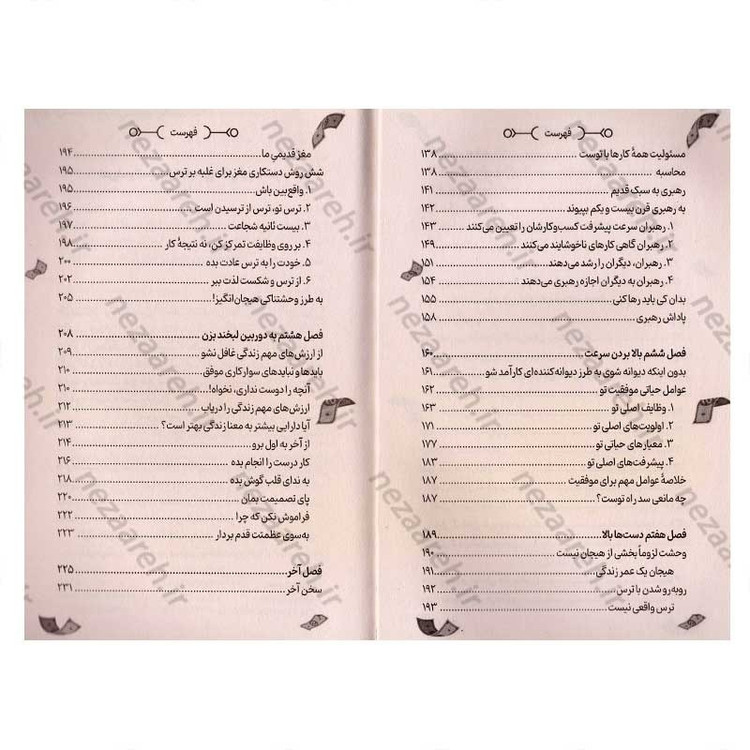 فهرست
مسئولیت همهٔ کارها با توست ........ ۱۳۸
محاسبه ........ ۱۳۸
رهبری به سبک قدیم ........ ۱۴۱
به رهبری قرن بیست و یکم بپیوند ........ ۱۴۲
۱. رهبران سرعت پیشرفت کسب‌وکارشان را تعیین می‌کنند ........ ۱۴۳
۲. رهبران گاهی کارهای ناخوشایند می‌کنند ........ ۱۴۹
۳. رهبران، دیگران را رشد می‌دهند ........ ۱۵۱
۴. رهبران به دیگران اجازه رهبری می‌دهند ........ ۱۵۴
بدان کی باید رها کنی ........ ۱۵۵
پاداش رهبری ........ ۱۵۸
فصل ششم بالا بردن سرعت ........ ۱۶۰
بدون اینکه دیوانه شوی به طرز دیوانه کننده‌ای کارآمد شو ........ ۱۶۱
عوامل حیاتی موفقیت تو ........ ۱۶۲
۱. وظایف اصلی تو ........ ۱۶۳
۲. اولویت‌های اصلی تو ........ ۱۷۱
۳. معیارهای حیاتی تو ........ ۱۷۷
۴. پیشرفت‌های اصلی تو ........ ۱۸۳
خلاصهٔ عوامل مهم برای موفقیت ........ ۱۸۷
چه مانعی سد راه توست؟ ........ ۱۸۷
فصل هفتم دست‌ها بالا ........ ۱۸۹
وحشت لزوماً بخشی از هیجان نیست ........ ۱۹۰
هیجان یک عمر زندگی ........ ۱۹۱
روبه‌رو شدن با ترس ........ ۱۹۲
ترس واقعی نیست ........ ۱۹۳
فهرست
مغز قدیمیِ ما ........ ۱۹۴
شش روش دستکاری مغز برای غلبه بر ترس ........ ۱۹۵
۱. واقع‌بین باش ........ ۱۹۵
۲. ترس تو، ترس از ترسیدن است ........ ۱۹۶
۳. بیست ثانیه شجاعت ........ ۱۹۷
۴. بر روی وظایفت تمرکز کن، نه نتیجهٔ کار ........ ۱۹۸
۵. خودت را به ترس عادت بده ........ ۲۰۰
۶. از ترس و شکست لذت ببر ........ ۲۰۲
به طرز وحشتناکی هیجان‌انگیز! ........ ۲۰۵
فصل هشتم به دوربین لبخند بزن ........ ۲۰۸
از ارزش‌های مهم زندگی غافل نشو ........ ۲۰۹
بایدها و نبایدهای سوارکاری موفق ........ ۲۱۰
آنچه را دوست نداری، نخواه! ........ ۲۱۰
ارزش‌های مهم زندگی را دریاب ........ ۲۱۲
آیا دارایی بیشتر به معنا زندگی بهتر است؟ ........ ۲۱۳
از آخر به اول برو ........ ۲۱۴
کار درست را انجام بده ........ ۲۱۶
به ندای قلب گوش بده ........ ۲۱۸
پای تصمیمت بمان ........ ۲۲۰
فراموش نکن که چرا ........ ۲۲۲
به‌سوی عظمتت قدم بردار ........ ۲۲۳
فصل آخر ........ ۲۲۵
سخن آخر ........ ۲۳۱
nezaareh.ir